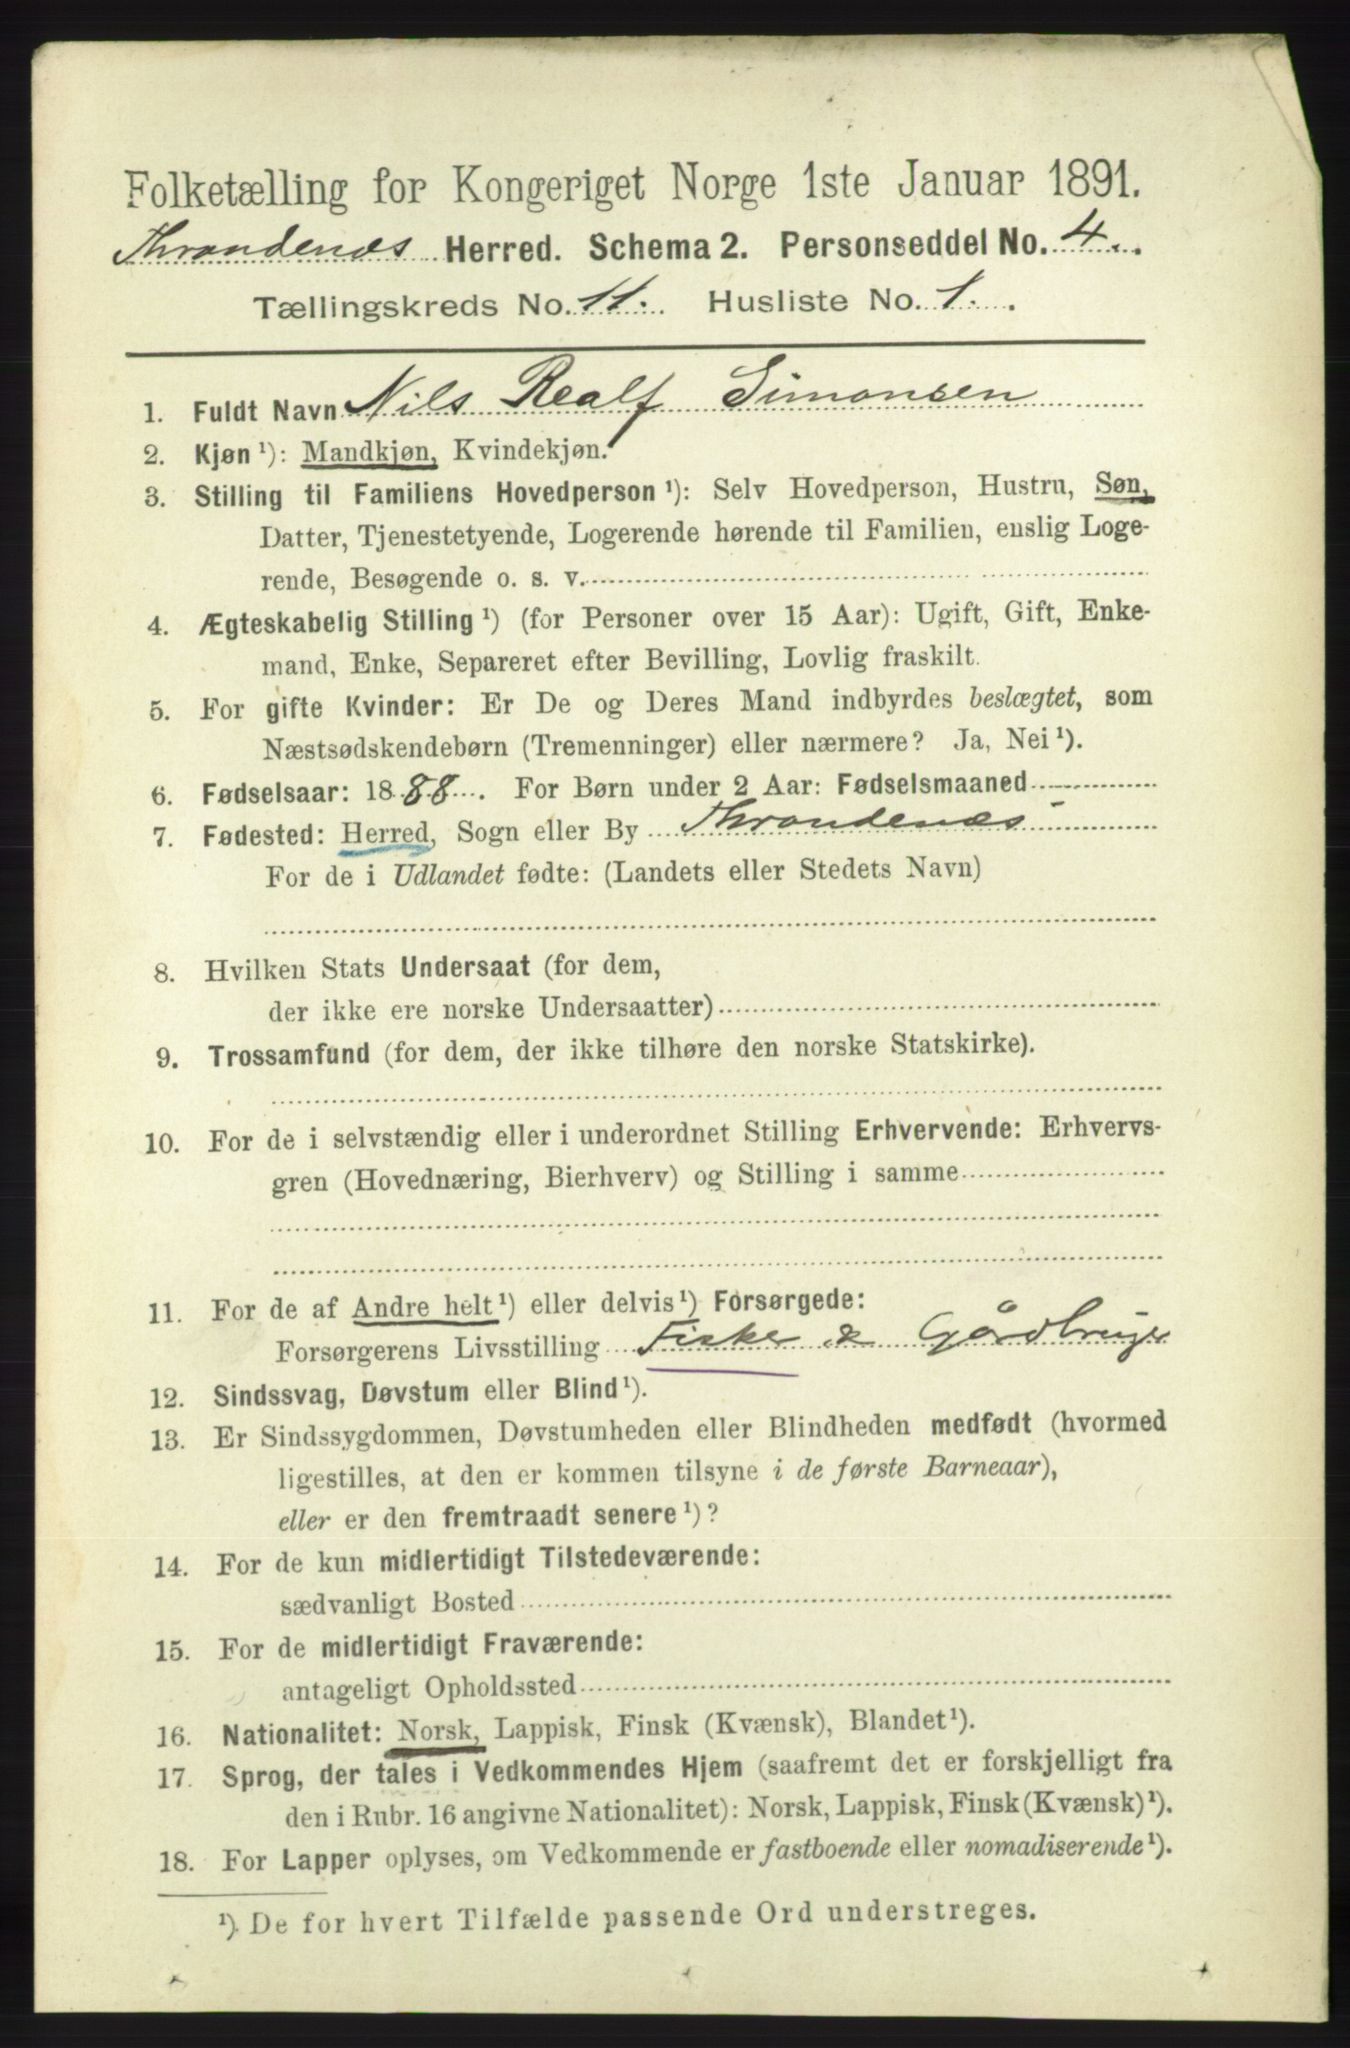 Folketælling for Kongeriget Norge 1ste Januar 1891.
Throndenæs Herred. Schema 2. Personseddel No. 4.
Tællingskreds No. 11. Husliste No. 1.
1. Fuldt Navn Nils Realf Simonsen
2. Kjøn ¹): Mandkjøn, Kvindekjøn.
3. Stilling til Familiens Hovedperson ¹): Selv Hovedperson, Hustru, Søn,
Datter, Tjenestetyende, Logerende hørende til Familien, enslig Loge-
rende, Besøgende o. s. v.
4. Ægteskabelig Stilling ¹) (for Personer over 15 Aar): Ugift, Gift, Enke-
mand, Enke, Separeret efter Bevilling, Lovlig fraskilt.
5. For gifte Kvinder: Er De og Deres Mand indbyrdes beslægtet, som
Næstsødskendebørn (Tremenninger) eller nærmere? Ja, Nei ¹).
6. Fødselsaar: 1888. For Børn under 2 Aar: Fødselsmaaned
7. Fødested: Herred, Sogn eller By Throndenæs
For de i Udlandet fødte: (Landets eller Stedets Navn)
8. Hvilken Stats Undersaat (for dem,
der ikke ere norske Undersaatter)
9. Trossamfund (for dem, der ikke tilhøre den norske Statskirke).
10. For de i selvstændig eller i underordnet Stilling Erhvervende: Erhvervs-
gren (Hovednæring, Bierhverv) og Stilling i samme
11. For de af Andre helt ¹) eller delvis ¹) Forsørgede:
Forsørgerens Livsstilling Fisker & Gårdbruger
12. Sindssvag, Døvstum eller Blind ¹).
13. Er Sindssygdommen, Døvstumheden eller Blindheden medfødt (hvormed
ligestilles, at den er kommen tilsyne i de første Barneaar),
eller er den fremtraadt senere ¹)?
14. For de kun midlertidigt Tilstedeværende:
sædvanligt Bosted
15. For de midlertidigt Fraværende:
antageligt Opholdssted
16. Nationalitet: Norsk, Lappisk, Finsk (Kvænsk), Blandet ¹).
17. Sprog, der tales i Vedkommendes Hjem (saafremt det er forskjelligt fra
den i Rubr. 16 angivne Nationalitet): Norsk, Lappisk, Finsk (Kvænsk) ¹).
18. For Lapper oplyses, om Vedkommende er fastboende eller nomadiserende ¹).
¹). De for hvert Tilfælde passende Ord understreges.